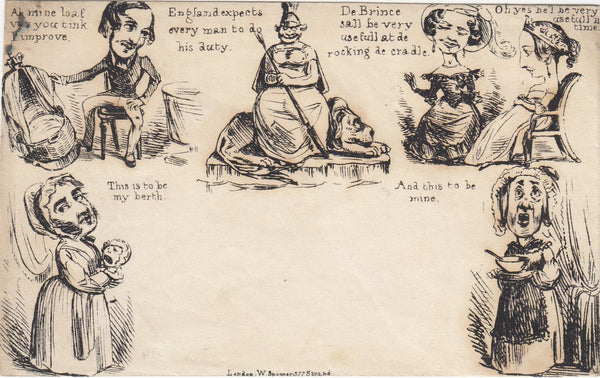 Ah mine loaf
vas you tink
I improve.
England expects
every man to do
his duty.
De Brince
sall be very
usefull at de
rocking de cradle.
Oh yes he'l be very
usefull in
time.
This is to be
my berth.
And this to be
mine.
London. W. Spooner 377 Strand.